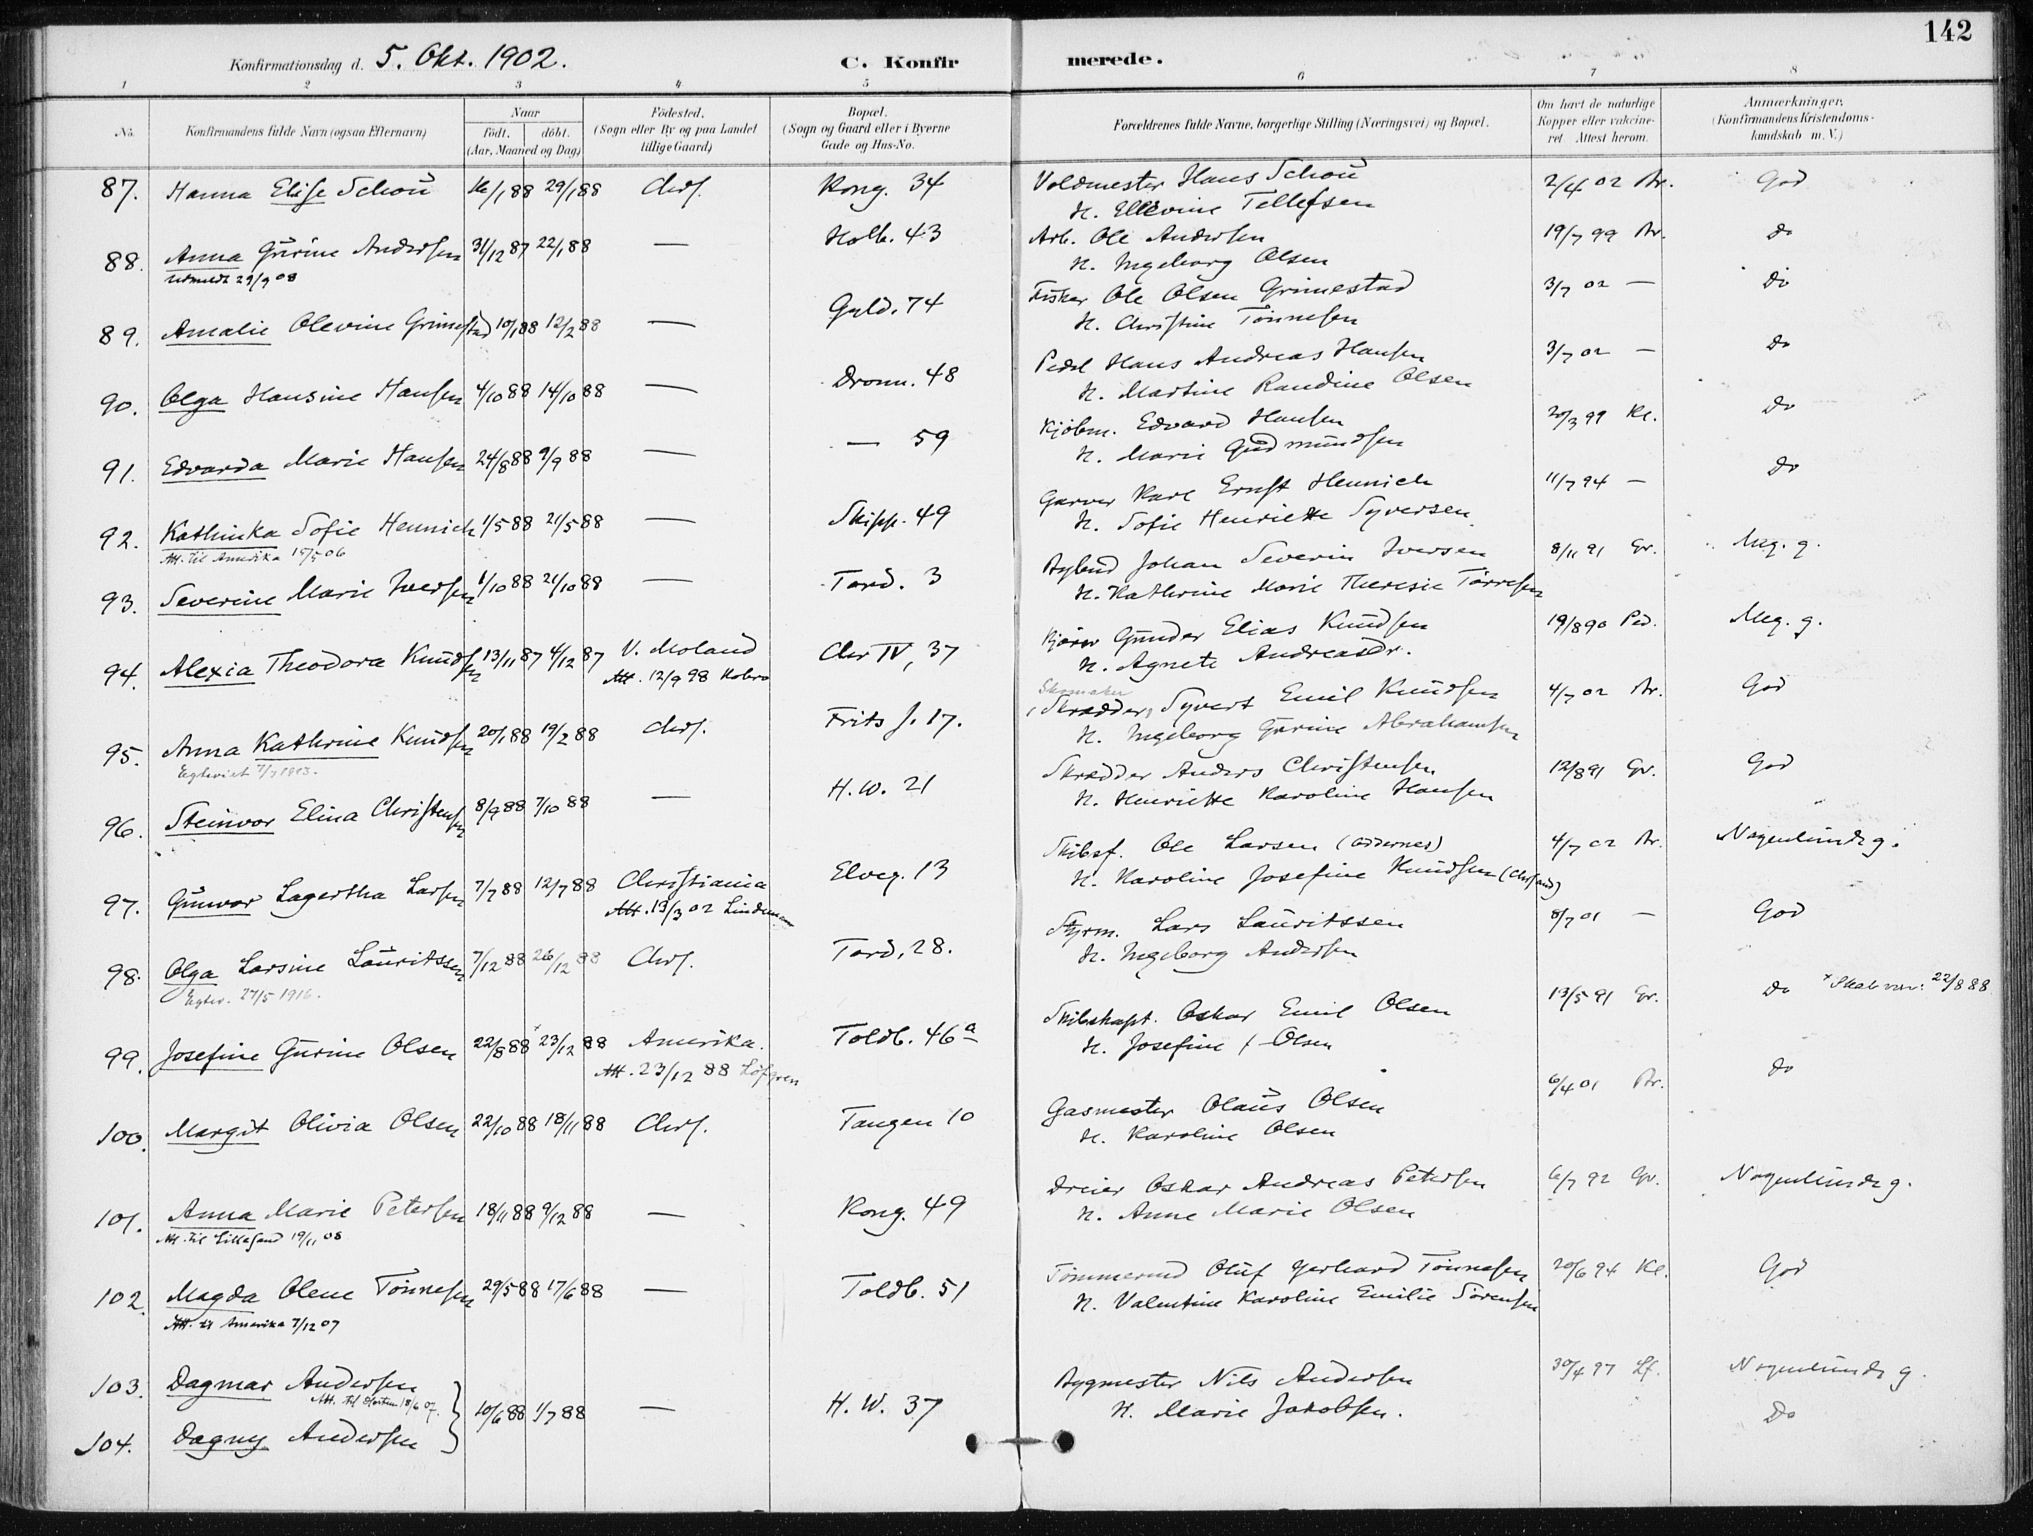 142
Konfirmationsdag d. 5. Okt. 1902.
C. Konfirmerede.
1 2 3 4 5 6 7 8
No.
Konfirmandens fulde Navn (ogsaa Efternavn)
Naar
født. døbt.
(Aar, Maaned og Dag)
Fødested.
(Sogn eller By og paa Landet
tillige Gaard)
Bopæl.
(Sogn og Gaard eller i Byerne
Gade og Hus-No.
Forældrenes fulde Navne, borgerlige Stilling (Næringsvei) og Bopæl.
Om havt de naturlige
Kopper eller vakcine-
ret. Attest herom.
Anmærkninger.
(Konfirmandens Kristendoms-
kundskab m. V.)
87. Hanna Elise Schou 16/1 88 29/1 88 Chrs. Kong. 34 Voldmester Hans Schou 2/4 02 Br. God
H. Ellevine Tellefsen
88. Anna Gurine Andersen 31/12 87 22/1 88 — Holb. 43 Arb. Ole Andersen 19/7 99 Br. Do
Udmeldt 29/9 08
H. Ingeborg Olsen
89. Amalie Olevine Grimestad 10/1 88 12/2 88 — Gyld. 74 Fisker Ole Olsen Grimestad 3/7 02 — Do
H. Christine Tønnesen
90. Olga Hansine Hansen 4/10 88 14/10 88 — Dronn. 48 Pedel Hans Andreas Hansen 3/7 02 — Do
H. Martine Randine Olsen
91. Edvarda Marie Hansen 24/8 88 9/9 88 — — 59 Kjøbm. Edvard Hansen 20/3 99 Kl. Do
H. Marie Gudmundsen
92. Kathinka Sofie Hennich 1/5 88 21/5 88 — Skipp. 49 Garver Karl Ernst Hennich 11/7 94 — Do
Att. til Amerika 15/5 06
H. Sofie Henriette Syversen
93. Severine Marie Iversen 1/10 88 21/10 88 — Tord. 3 Bybud Johan Severin Iversen 8/11 91 Gr. Meg. g.
H. Kathrine Marie Theresie Tørresen
94. Alexia Theodora Knudsen 13/11 87 4/12 87 V. Moland Chr IV, 37 Gunder Elias Knudsen 19/8 90 Ped. Meg. g.
Att. 12/9 98
H. Agnete Andreasdr.
95. Anna Kathrine Knudsen 20/1 88 19/2 88 Chrs. Frits J. 17. Skomaker (Skrædder) Syvert Emil Knudsen 4/7 02 Br. God
Egteviet 7/7 1913.
H. Ingeborg Gurine Abrahamsen
96. Steinvor Elina Christensen 8/9 88 7/10 88 — H. W. 21 Skrædder Anders Christensen 12/8 91 Gr. God
H. Henriette Karoline Hansen
97. Gunvor Lagertha Larsen 7/7 88 12/7 88 Christiania Elveg. 13 Skibsf. Ole Larsen (Oddernes) 4/7 02 Br. Nogenlunde g.
Att. 13/3 02 Lindeman
H. Karoline Josefine Knudsen (Chrsand)
98. Olga Larsine Lauritssen 7/12 88 26/12 88 Chrs. Tord. 28. Styrm. Lars Lauritssen 8/7 01 — God
Egtev. 27/5 1916.
H. Ingeborg Andersen
99. Josefine Gurine Olsen 22/8 88 × 23/12 88 Amerika. Toldb. 46a Skibskapt. Oskar Emil Olsen 13/5 91 Gr. Do × Skal vær: 22/8 88
Att. 23/12 88 Löfgren
H. Josefine f. Olsen
100. Margit Olivia Olsen 22/10 88 18/11 88 Chrs. Tangen 10 Gasmester Olaus Olsen 6/4 01 Br. Do
H. Karoline Olsen
101. Anna Marie Petersen 18/11 88 9/12 88 — Kong. 49 Dreier Oskar Andreas Petersen 6/7 92 Gr. Nogenlunde g.
Att. til Lillesand 19/11 08
H. Anne Marie Olsen
102. Magda Olene Tønnesen 29/5 88 17/6 88 — Toldb. 51 Tømmermd Oluf Gerhard Tønnesen 20/6 94 Kl. God
Att. til Amerika 7/12 07
H. Valentine Karoline Emilie Sørensen
103. Dagmar Andersen 10/6 88 1/7 88 — H. W. 37 Bygmester Nils Andersen 30/4 97 Lf. Nogenlunde g.
Att. til Horten 18/6 07.
H. Marie Jakobsen.
104. Dagny Andersen Do